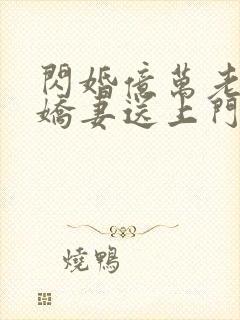 閃婚億萬老
嬌妻送上門
燒鴨